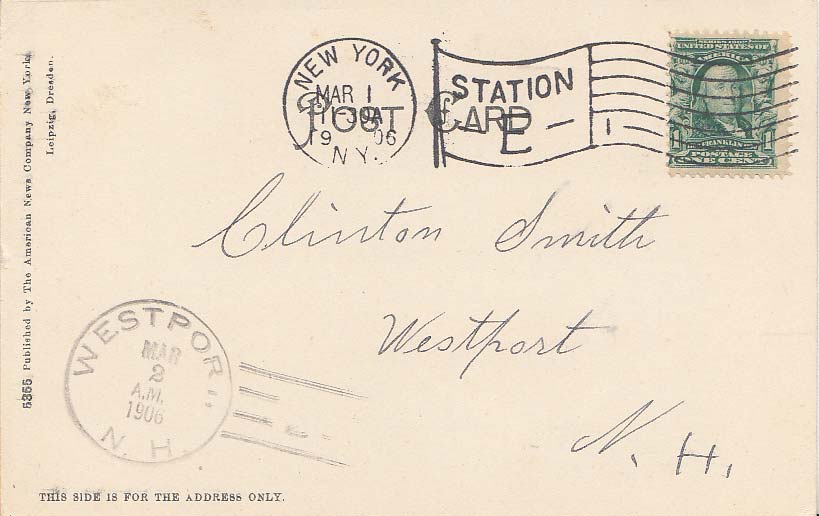 NEW YORK
MAR 1
11-30A
1906
N.Y.
STATION
E - 1
POST CARD
SERIES 1902
UNITED STATES OF
AMERICA
1 FRANKLIN 1
POSTAGE
ONE CENT
Clinton Smith
Westport
N. H.
WESTPORT
MAR
2
A.M.
1906
N. H.
5355 Published by The American News Company New York
Leipzig, Dresden.
THIS SIDE IS FOR THE ADDRESS ONLY.